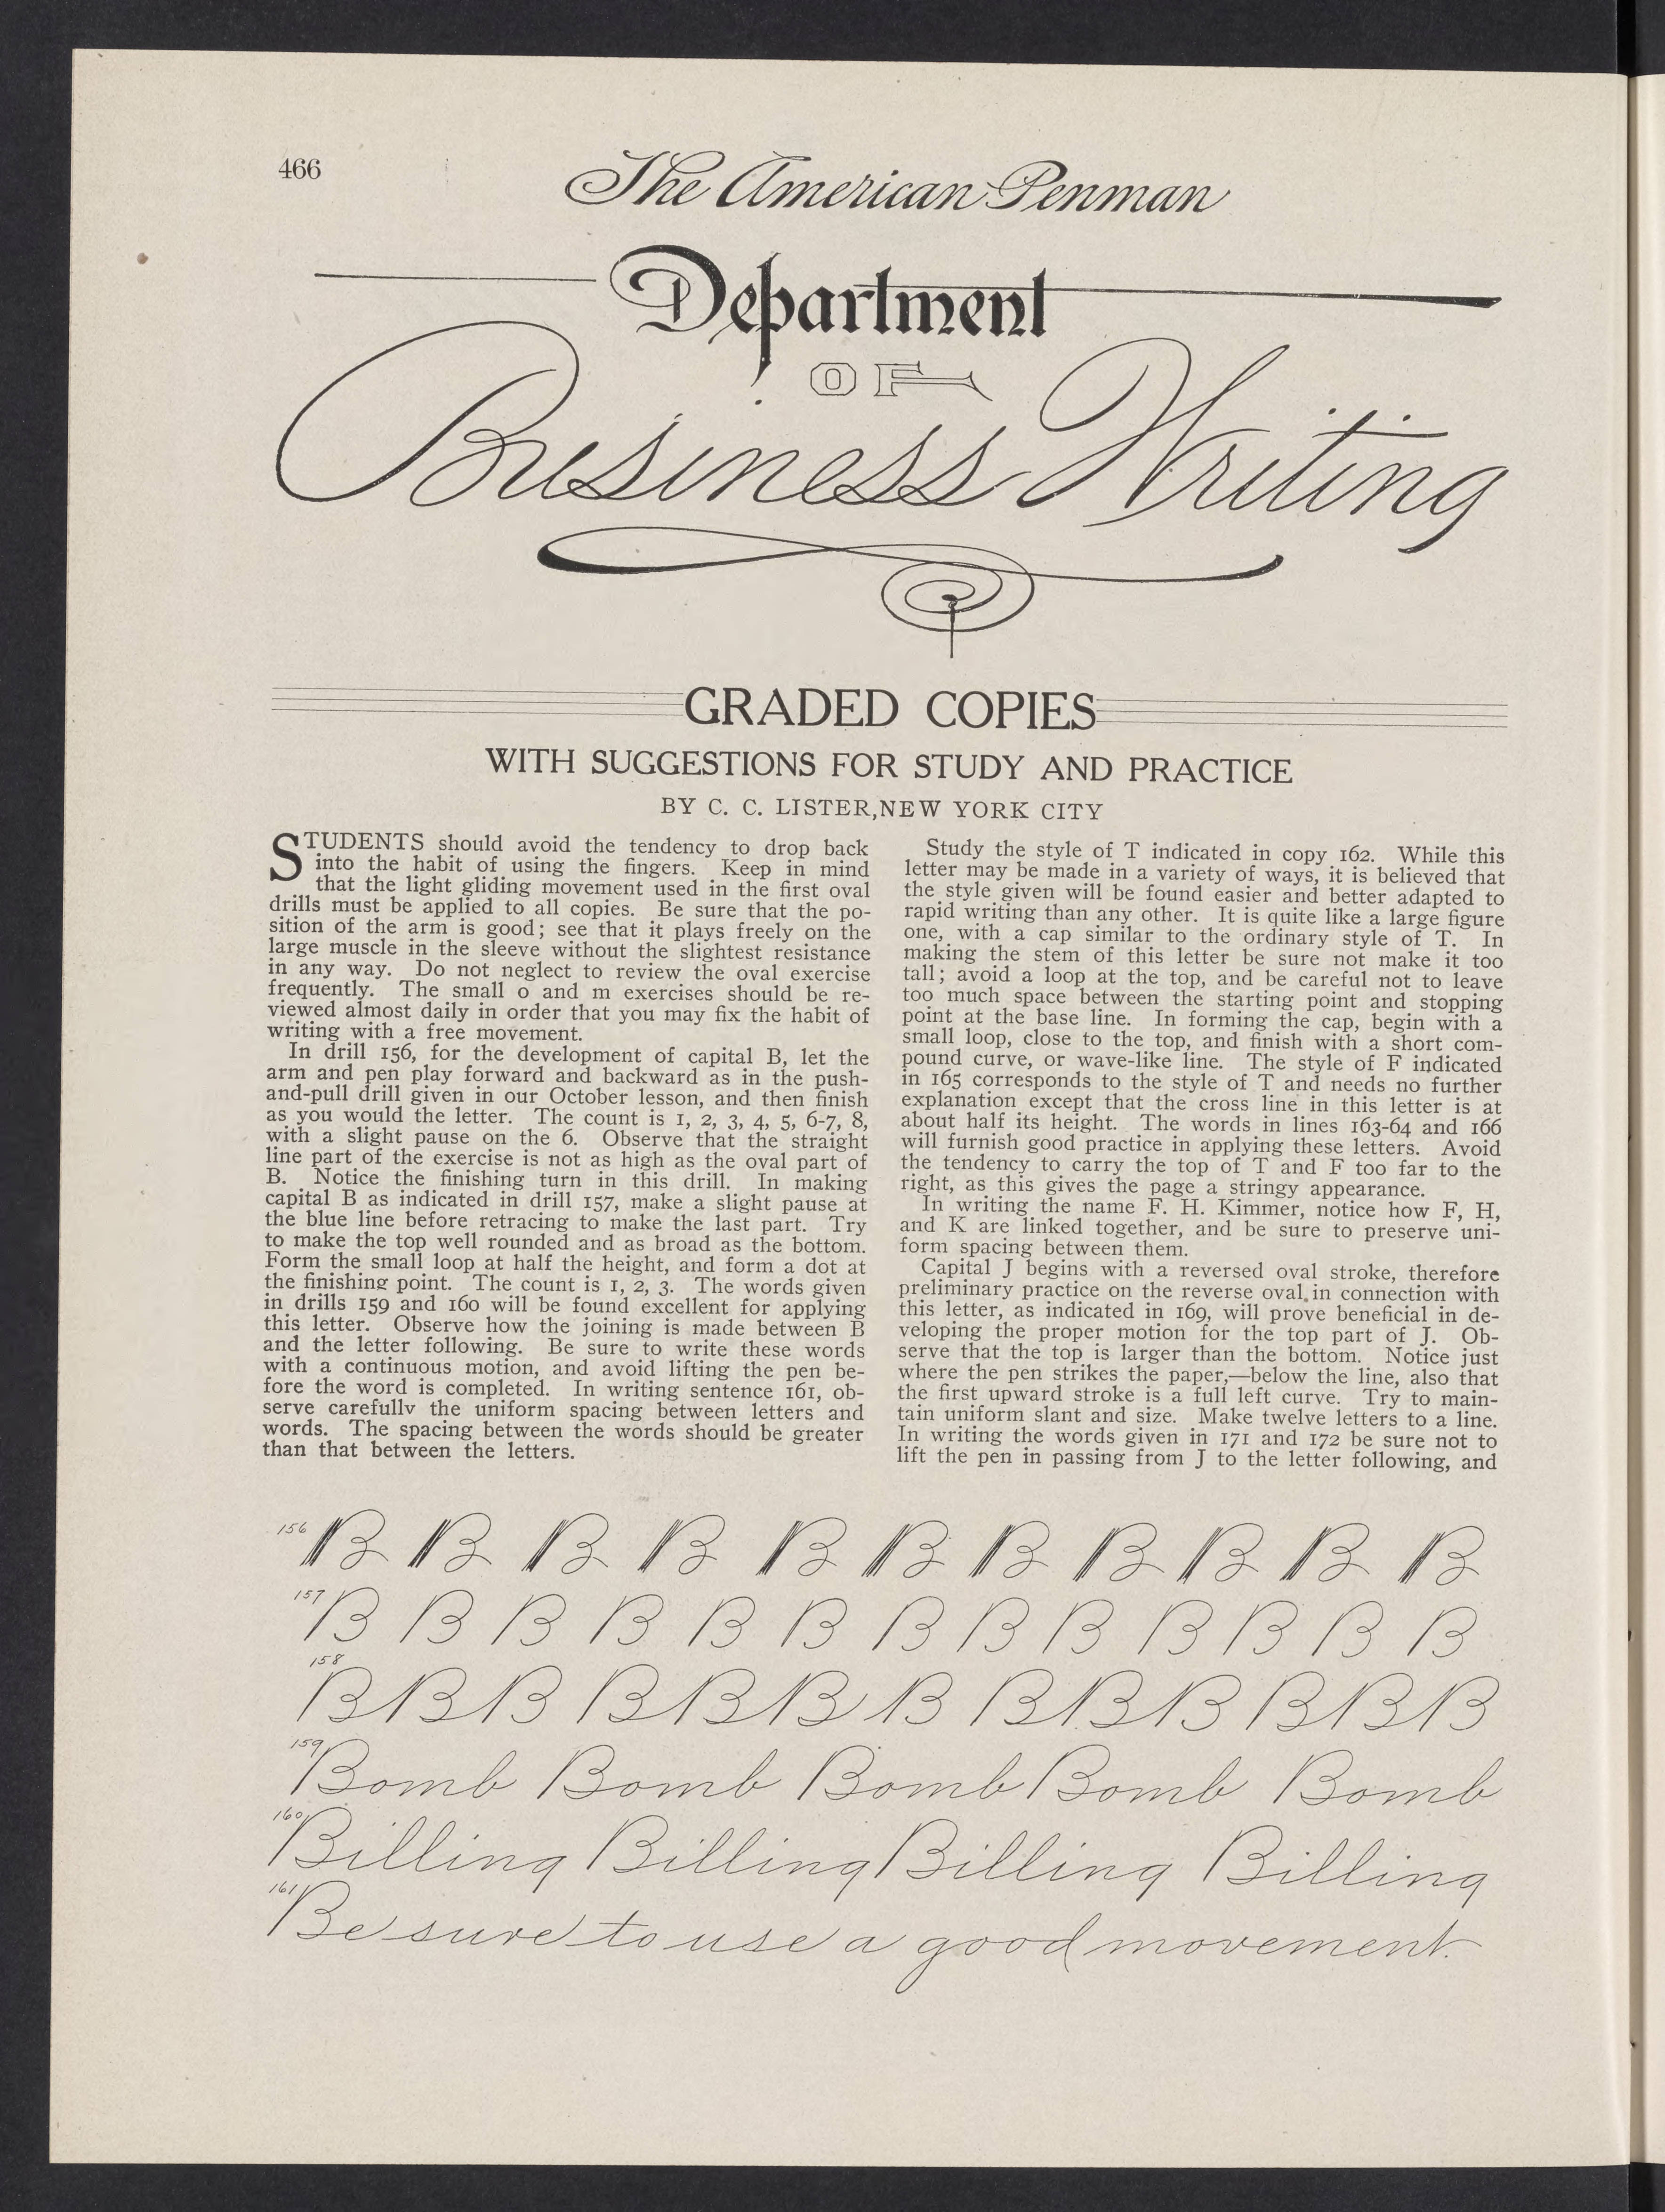 466
The American Penman
Department
OF
Business Writing
GRADED COPIES
WITH SUGGESTIONS FOR STUDY AND PRACTICE
BY C. C. LISTER, NEW YORK CITY
STUDENTS should avoid the tendency to drop back
into the habit of using the fingers. Keep in mind
that the light gliding movement used in the first oval
drills must be applied to all copies. Be sure that the po-
sition of the arm is good; see that it plays freely on the
large muscle in the sleeve without the slightest resistance
in any way. Do not neglect to review the oval exercise
frequently. The small o and m exercises should be re-
viewed almost daily in order that you may fix the habit of
writing with a free movement.
In drill 156, for the development of capital B, let the
arm and pen play forward and backward as in the push-
and-pull drill given in our October lesson, and then finish
as you would the letter. The count is 1, 2, 3, 4, 5, 6-7, 8,
with a slight pause on the 6. Observe that the straight
line part of the exercise is not as high as the oval part of
B. Notice the finishing turn in this drill. In making
capital B as indicated in drill 157, make a slight pause at
the blue line before retracing to make the last part. Try
to make the top well rounded and as broad as the bottom.
Form the small loop at half the height, and form a dot at
the finishing point. The count is 1, 2, 3. The words given
in drills 159 and 160 will be found excellent for applying
this letter. Observe how the joining is made between B
and the letter following. Be sure to write these words
with a continuous motion, and avoid lifting the pen be-
fore the word is completed. In writing sentence 161, ob-
serve carefully the uniform spacing between letters and
words. The spacing between the words should be greater
than that between the letters.
Study the style of T indicated in copy 162. While this
letter may be made in a variety of ways, it is believed that
the style given will be found easier and better adapted to
rapid writing than any other. It is quite like a large figure
one, with a cap similar to the ordinary style of T. In
making the stem of this letter be sure not make it too
tall; avoid a loop at the top, and be careful not to leave
too much space between the starting point and stopping
point at the base line. In forming the cap, begin with a
small loop, close to the top, and finish with a short com-
pound curve, or wave-like line. The style of F indicated
in 165 corresponds to the style of T and needs no further
explanation except that the cross line in this letter is at
about half its height. The words in lines 163-64 and 166
will furnish good practice in applying these letters. Avoid
the tendency to carry the top of T and F too far to the
right, as this gives the page a stringy appearance.
In writing the name F. H. Kimmer, notice how F, H,
and K are linked together, and be sure to preserve uni-
form spacing between them.
Capital J begins with a reversed oval stroke, therefore
preliminary practice on the reverse oval in connection with
this letter, as indicated in 169, will prove beneficial in de-
veloping the proper motion for the top part of J. Ob-
serve that the top is larger than the bottom. Notice just
where the pen strikes the paper,—below the line, also that
the first upward stroke is a full left curve. Try to main-
tain uniform slant and size. Make twelve letters to a line.
In writing the words given in 171 and 172 be sure not to
lift the pen in passing from J to the letter following, and
156 B B B B B B B B B B B
157 B B B B B B B B B B B B B
158 B B B B B B B B B B B B B
159 Bomb Bomb Bomb Bomb Bomb
160 Billing Billing Billing Billing
161 Be sure to use a good movement.